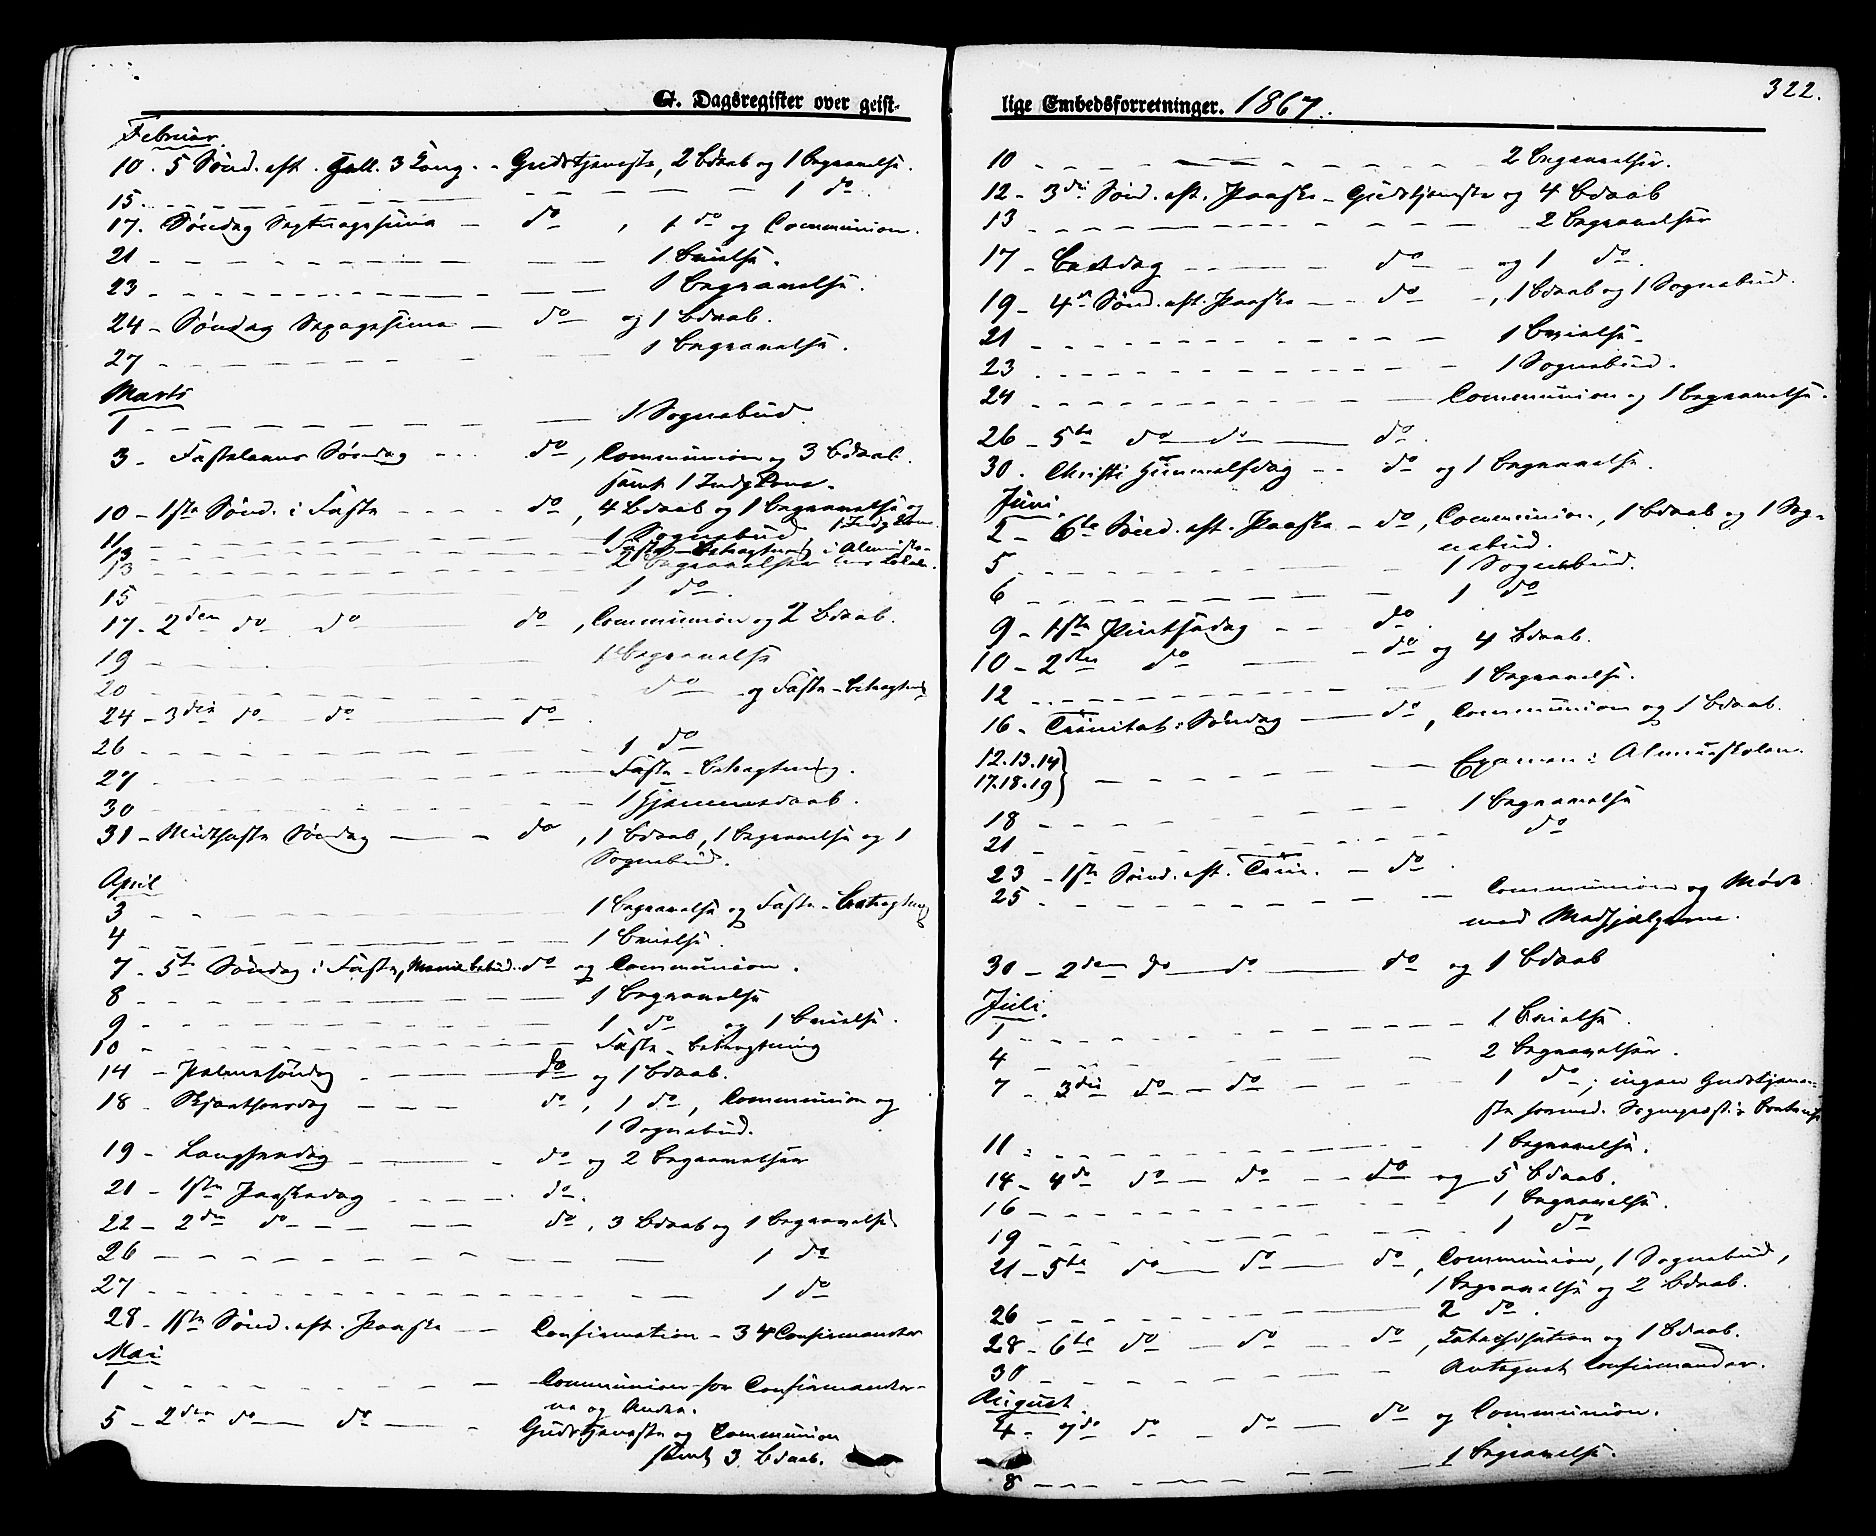 G. Dagsregister over geist-
Februar.
10. 5 Sønd. eft. Hell. 3 Kong. - Gudstjeneste, 2 Bdaab og 1 Begravelse.
15. 1 do
17. Søndag Septuagesima - do, 1 do og Communion.
21 - 1 Brielse.
23 - 1 Begravelse.
24 - Søndag Sexagesima - do og 1 Bdaab.
27 - 1 Begravelse.
Marts
1 - 1 Sognebud.
3 - Fastelavns Søndag - do, Communion og 3 Bdaab.
samt 1 Indg Kone.
10 - 1ste Sønd. i Faste - do, 4 Bdaab og 1 Begravelse og
1 Indg Kone.
11 - 1 Sognebud
13 - Faste-Betragtning i Almueskolens Lokale.
13 - 2 Begravelser
15 - 1 do.
17 - 2den do do do, Communion og 2 Bdaab.
19 - 1 Begravelse
20 - do - og Faste-Betragtning
24 - 3die do do - do.
26 - 1 do
27 - Faste-Betragtning.
30 - 1 Hjemmedaab.
31 - Midfaste Søndag - do, 1 Bdaab, 1 Begravelse og 1
Sognebud.
April
3 - 1 Begravelse og Faste-Betragtning
4 - 1 Brielse.
7 - 5te Søndag i Faste, Mariæ Bebud. do og Communion.
8 - 1 Begravelse
9 - 1 do og 1 Brielse.
10 - Faste-Betragtning
14 - Palmesøndag - do og 1 Bdaab.
18 - Skjærthorsdag - do, 1 do, Communion og
1 Sognebud.
19 - Langfredag - do og 2 Begravelser
21 - 1ste Paaskedag - do.
22 - 2den do - do, 3 Bdaab og 1 Begravelse
26 - 1 do
27 - 1 do
28 - 1ste Sønd. eft. Paaske - Confirmation - 34 Confirmander
Mai
1 - Communion for Confirmander-
ne og Andre.
5 - 2den do do - Gudstjeneste og Communion
samt 3 Bdaab.
322.
lige Embedsforretninger. 1867.
10 - 2 Begravelser.
12 - 3die Sønd. eft. Paaske - Gudstjeneste og 4 Bdaab
13 - 2 Begravelser
17 - Bededag - do - og 1 do.
19 - 4de Sønd. eft. Paaske - do -, 1 Bdaab og 1 Sognebud.
21 - 1 Brielse.
23 - 1 Sognebud.
24 - Communion og 1 Begravelse.
26 - 5te do do - do.
30. Christi Himmelfdag - do og 1 Begravelse.
Juni.
2 - 6te Sønd. eft. Paaske - do, Communion, 1 Bdaab og 1 Sog-
nebud.
5 - 1 Sognebud.
6 - 1 do
9 - 1ste Pintsedag - do.
10 - 2den do - do og 4 Bdaab.
12 - 1 Begravelse.
16 - Trinitat: Søndag - do, Communion og 1 Bdaab.
12.13.14
17.18.19} - Examen i Almueskolen.
18 - 1 Begravelse
21 - do
23 - 1ste Sønd. eft. Trin. - do.
25 - Communion og Møde
med Medhjælperne.
30 - 2den do do - do og 1 Bdaab
Juli.
1 - 1 Brielse.
4 - 2 Begravelser.
7 - 3die do - do - 1 do; ingen Gudstjene-
ste formed. Sognepræstens
11 - 1 Begravelse.
14 - 4de do - do - do og 5 Bdaab.
16 - 1 Begravelse.
19 - 1 do
21 - 5te do - do - do, Communion, 1 Sognebud,
1 Begravelse og 2 Bdaab.
26 - 2 do.
28 - 6te do - do - do, Catechisation og 1 Bdaab.
30 - Antegnet Confirmander.
August.
4 - 7de do - do - do og Communion.
8 - 1 Begravelse.